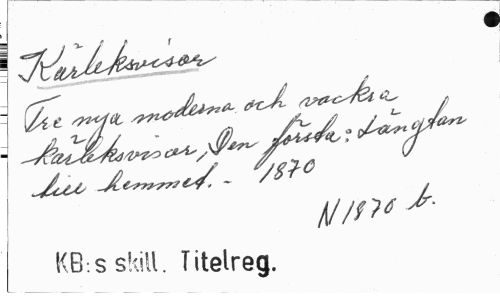 Kärleksvisor
Tre nya moderna och vackra
kärleksvisor, Den första: Längtan
till hemmet. - 1870
N 1870 b.
KB:s skill. Titelreg.